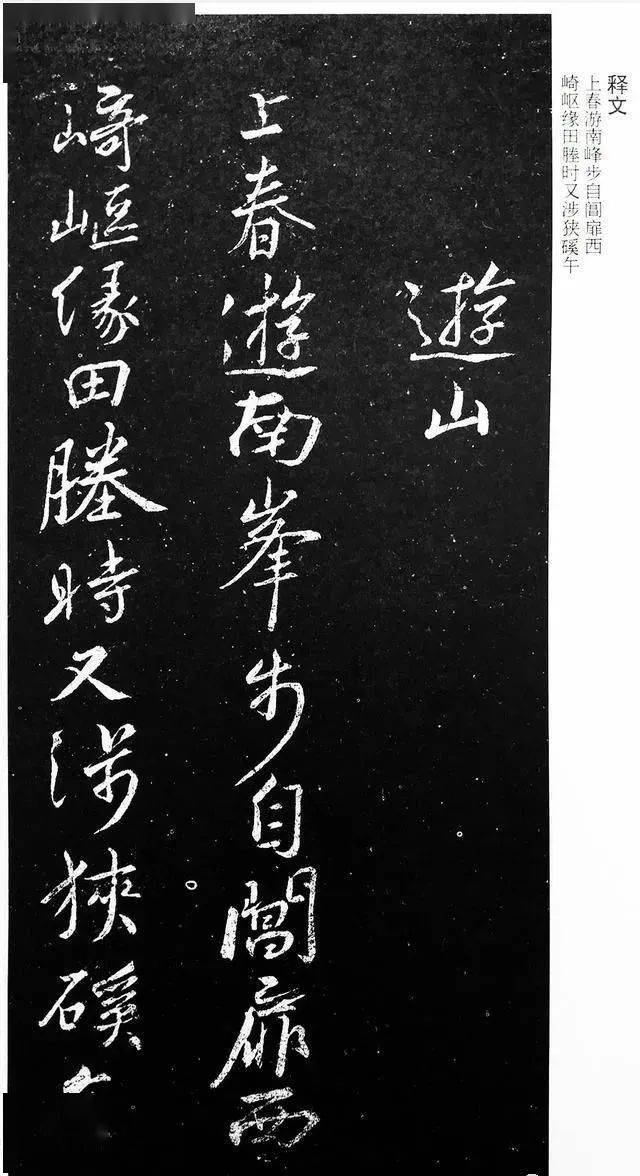 释文
上春游南峰步自阊扉西
崎岖缘田塍时又涉狭磎午
遊山
上春遊南峯步自閶扉西
崎嶇緣田塍時又涉狹磎